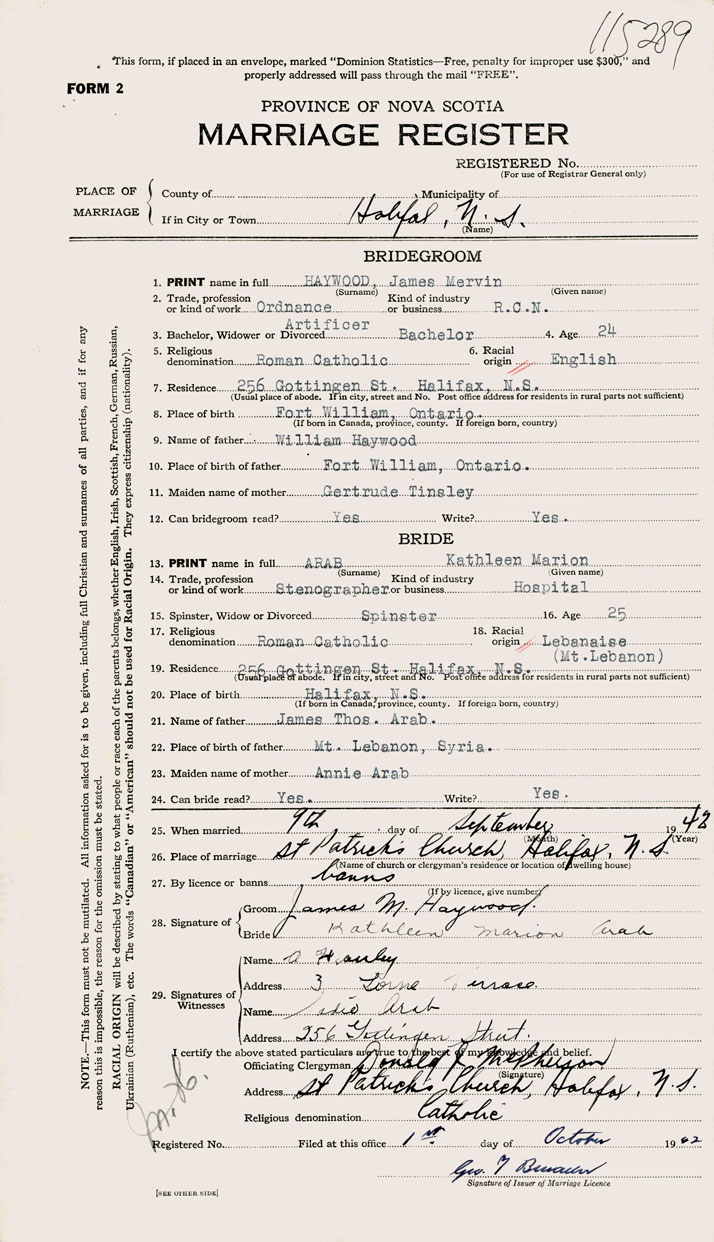 115289
"This form, if placed in an envelope, marked "Dominion Statistics—Free, penalty for improper use $300," and
properly addressed will pass through the mail "FREE".
FORM 2
PROVINCE OF NOVA SCOTIA
MARRIAGE REGISTER
REGISTERED No.
(For use of Registrar General only)
PLACE OF MARRIAGE
County of Municipality of
If in City or Town Halifax, N. S.
(Name)
BRIDEGROOM
1. PRINT name in full HAYWOOD, James Mervin
(Surname) (Given name)
2. Trade, profession or kind of work Ordnance Artificer Kind of industry or business R.C.N.
3. Bachelor, Widower or Divorced Bachelor 4. Age 24
5. Religious denomination Roman Catholic 6. Racial origin English
7. Residence 256 Gottingen St. Halifax, N.S.
(Usual place of abode. If in city, street and No. Post office address for residents in rural parts not sufficient)
8. Place of birth Fort William, Ontario.
(If born in Canada, province, county. If foreign born, country)
9. Name of father William Haywood
10. Place of birth of father Fort William, Ontario.
11. Maiden name of mother Gertrude Tinsley
12. Can bridegroom read? Yes Write? Yes.
BRIDE
13. PRINT name in full ARAB Kathleen Marion
(Surname) (Given name)
14. Trade, profession or kind of work Stenographer Kind of industry or business Hospital
15. Spinster, Widow or Divorced Spinster 16. Age 25
17. Religious denomination Roman Catholic 18. Racial origin Lebanaise
(Mt.Lebanon)
19. Residence 256 Gottingen St. Halifax, N.S.
(Usual place of abode. If in city, street and No. Post office address for residents in rural parts not sufficient)
20. Place of birth Halifax, N.S.
(If born in Canada, province, county. If foreign born, country)
21. Name of father James Thos. Arab.
22. Place of birth of father Mt. Lebanon, Syria.
23. Maiden name of mother Annie Arab
24. Can bride read? Yes. Write? Yes.
25. When married 9th day of September 1942
(Month) (Year)
26. Place of marriage St Patrick's Church, Halifax, N. S.
(Name of church or clergyman's residence or location of dwelling house)
27. By licence or banns banns
(If by licence, give number)
28. Signature of
Groom James M. Haywood.
Bride Kathleen Marion Arab
29. Signatures of Witnesses
Name
Address 3 Lorne Terrace.
Name Arab
Address 256 Gottingen Street.
I certify the above stated particulars are true to the best of my knowledge and belief.
Officiating Clergyman Donald
(Signature)
Address St Patrick's Church, Halifax, N. S.
Religious denomination Catholic
Registered No. Filed at this office 1st day of October 1942
Geo.
Signature of Issuer of Marriage Licence
[SEE OTHER SIDE]
NOTE.—This form must not be mutilated. All information asked for is to be given, including full Christian and surnames of all parties, and if for any
reason this is impossible, the reason for the omission must be stated.
RACIAL ORIGIN will be described by stating to what people or race each of the parents belongs, whether English, Irish, Scottish, French, German, Russian,
Ukrainian (Ruthenian), etc. The words "Canadian" or "American" should not be used for Racial Origin. They express citizenship (nationality).